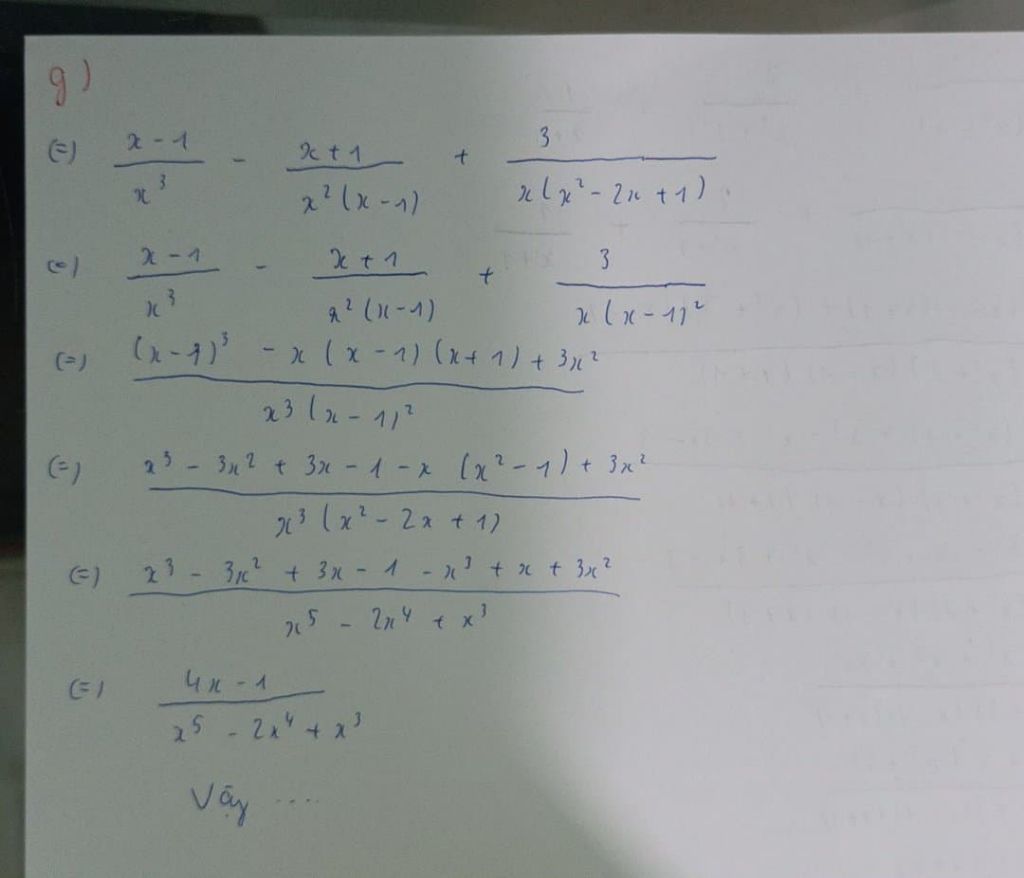 g)
(=) \frac{x-1}{x^3} - \frac{x+1}{x^2(x-1)} + \frac{3}{x(x^2-2x+1)}
(=) \frac{x-1}{x^3} - \frac{x+1}{x^2(x-1)} + \frac{3}{x(x-1)^2}
(=) \frac{(x-1)^3 - x(x-1)(x+1) + 3x^2}{x^3(x-1)^2}
(=) \frac{x^3 - 3x^2 + 3x - 1 - x(x^2-1) + 3x^2}{x^3(x^2-2x+1)}
(=) \frac{x^3 - 3x^2 + 3x - 1 - x^3 + x + 3x^2}{x^5 - 2x^4 + x^3}
(=) \frac{4x-1}{x^5 - 2x^4 + x^3}
Vậy ....